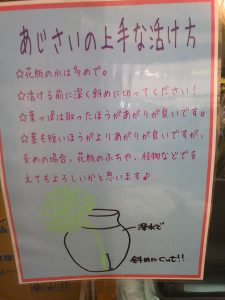 あじさいの上手な活け方
☆花瓶の水は多めで。
☆活ける前に深く斜めに切ってください！
☆葉っぱは取ったほうがあがりが良いです。
☆茎も短いほうがよりあがりが良いですが、
長めの場合、花瓶のふちや、枝物などで支
えてもよろしいかと思います♪
深水で
斜めにcut!!